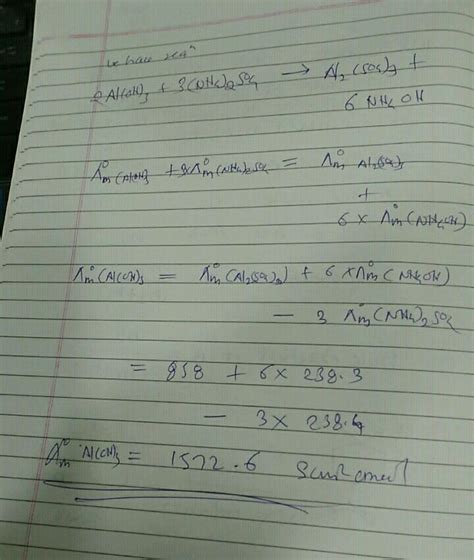 we have rxn
2Al(OH)3 + 3(NH4)2SO4 → Al2(SO4)3 +
6 NH4OH
Λ°m(Al(OH)3 + 3×Λ°m(NH4)2SO4 = Λ°m Al2(SO4)3
+
6 × Λ°m(NH4OH)
Λ°m(Al(OH)3 = Λ°m(Al2(SO4)3) + 6 ×Λ°m(NH4OH)
− 3 Λ°m(NH4)2SO4
= 858 + 6× 238.3
− 3× 238.4
Λ°m Al(OH)3 = 1572.6 Scm2